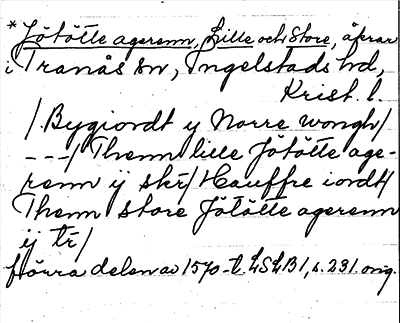 * Jötötte agerenn, Lille och Store, åkrar
i Tranås sn, Ingelstads hd,
Krist. l.
/ Bygiordt y Norre wongh/
---/ Thenn lille Jötötte age-
renn ij skr/ Hauffre iordt/
Thenn store Jötötte agerenn
ij tr/
Förra delen av 1570-t. LSLB1, s. 231 orig.